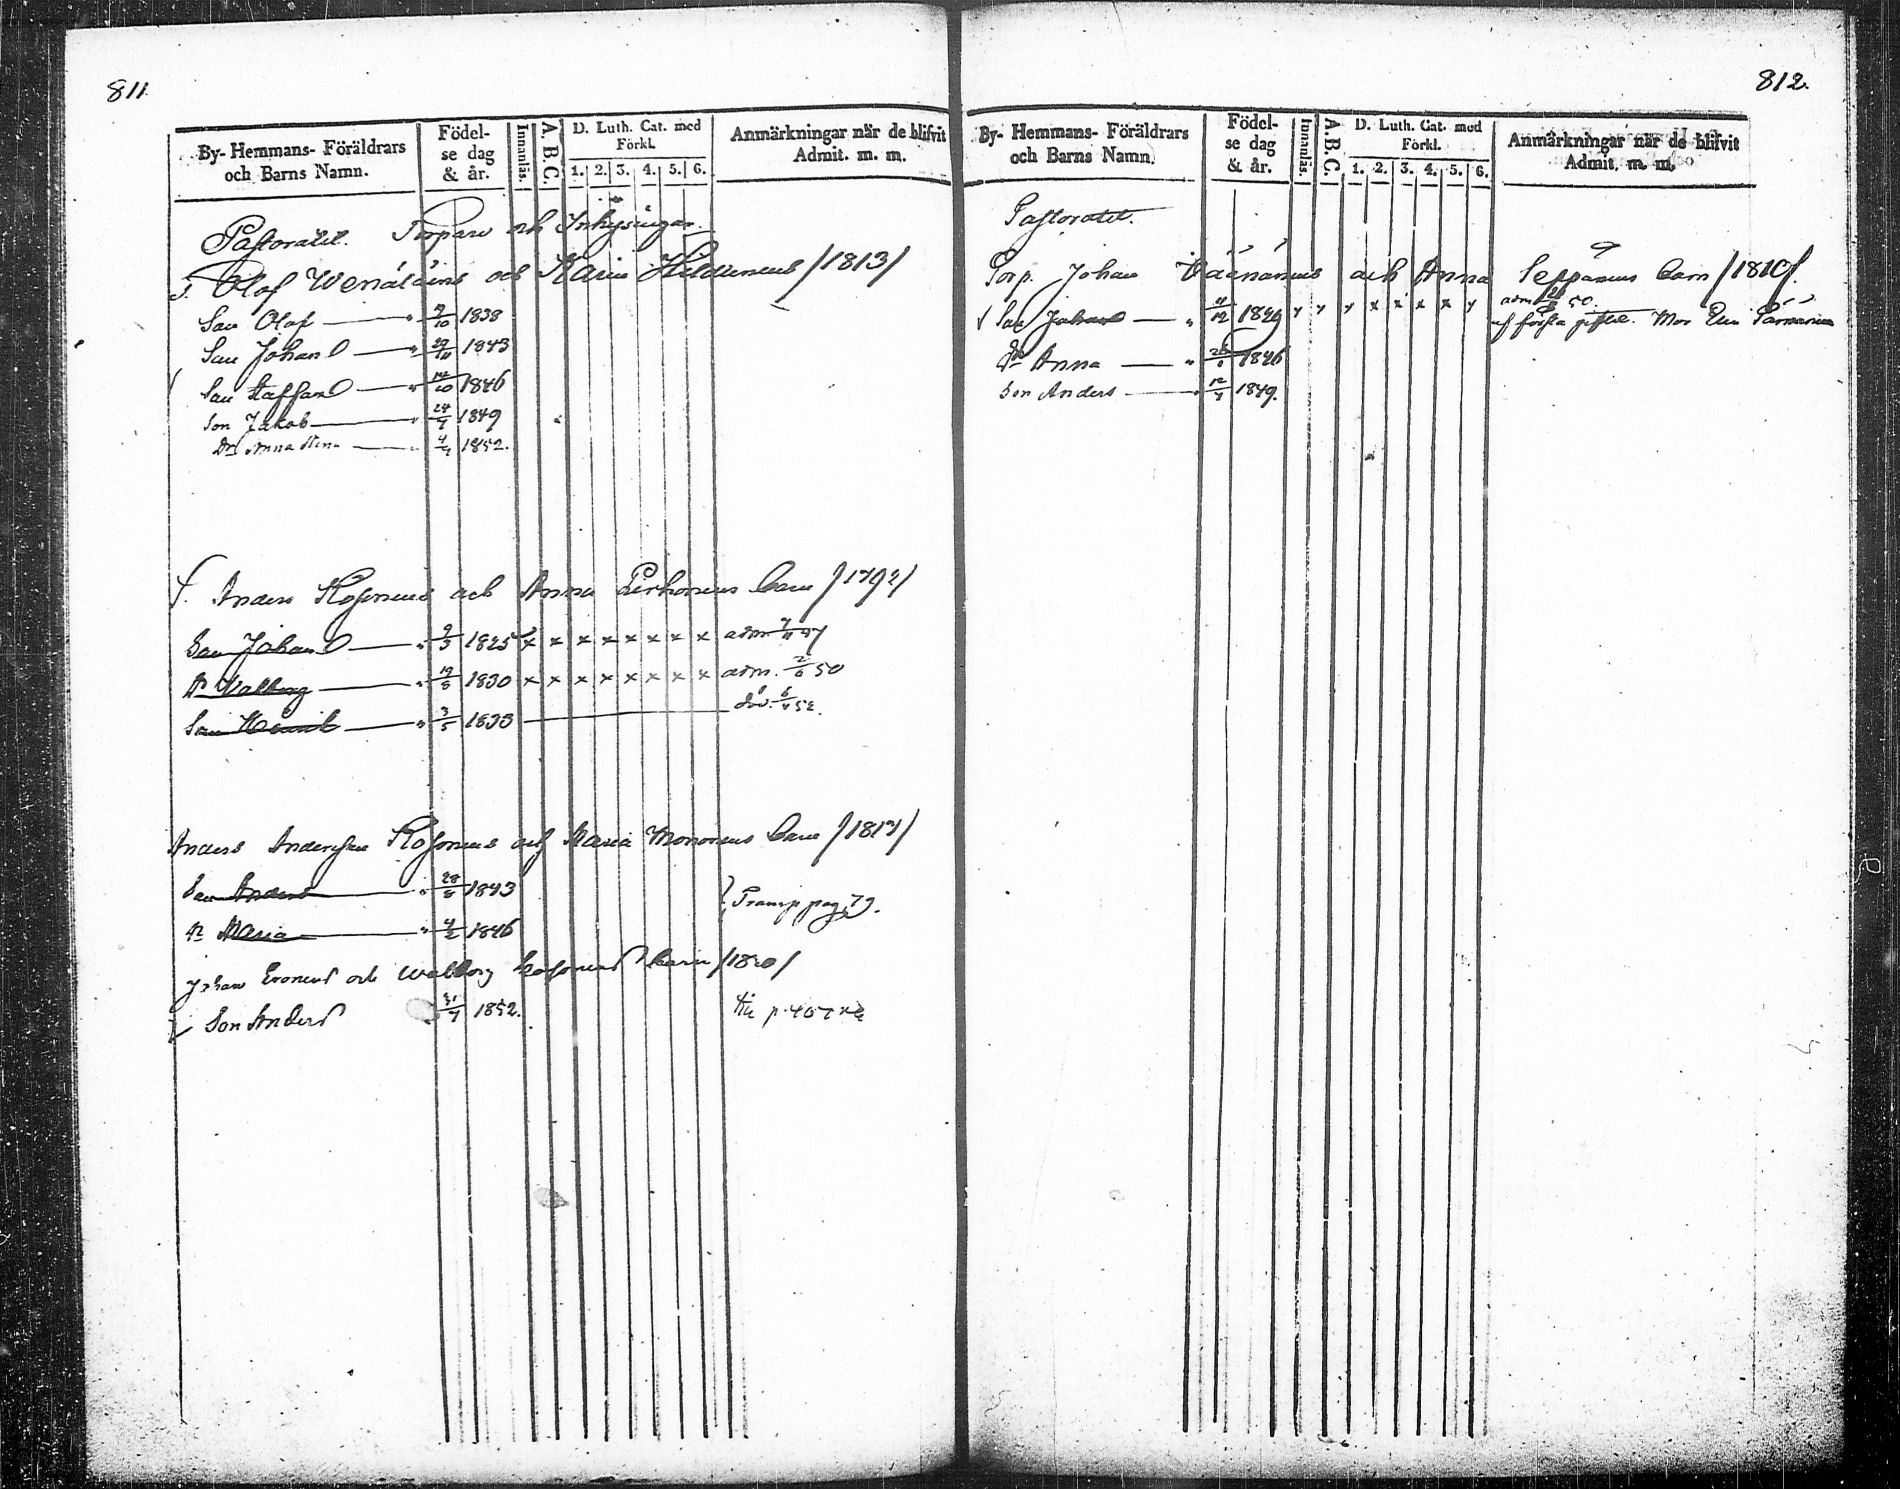 811.
By- Hemmans- Föräldrars och Barns Namn.
Födelse dag & år.
Innanläs.
A. B. C.
D. Luth. Cat. med Förkl.
1. 2. 3. 4. 5. 6.
Anmärkningar när de blifvit Admit. m. m.
Pastoratet. Torpare och Inhysingar
Olof Wenäläins och Karin /1813/
Son Olof " 9/10 1838
Son Johan " 29/11 1843
Son Staffan " 14/10 1846
Son Jakob " 24/7 1849
Dr Anna Stina 4/4 1852.
Anders Kosonens och Anna Pirhonens barn /1792/
Son Johan " 9/3 1825 x x x x x x x x adm 7/11 47
Dr Walborg " 19/8 1830 x x x x x x x x adm. 2/6 50
Son Henrik " 3/5 1833 död. 6/4 52.
Anders Andersson Kosonens och Maria Mononens barn /1817/
Son Anders " 28/8 1843
Transp pag. 79.
Dr Maria " 4/2 1846
Johan Eronens och Walborg Kosonens barn /1820/
Son Anders 31/7 1852. p. 407
812.
By- Hemmans- Föräldrars och Barns Namn.
Födelse dag & år.
Innanläs.
A. B. C.
D. Luth. Cat. med Förkl.
1. 2. 3. 4. 5. 6.
Anmärkningar när de blifvit Admit. m. m.
Pastoratet.
Torp. Johan Väänänens och Anna Seppänens barn /1810/.
Son Johan " 11/12 1829 x x x x x x x x adm 50.
af första giftet. Mor
Dr Anna " 1846
Son Anders " 12/7 1849.